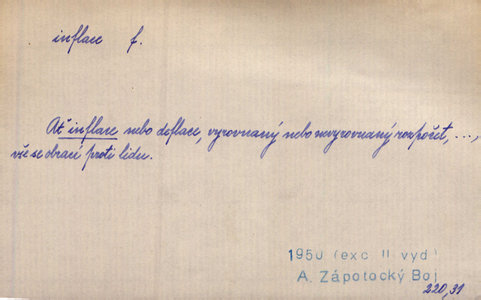 inflace f.
Ať inflace nebo deflace, vyrovnaný nebo nevyrovnaný rozpočet, ...,
vše se obrací proti lidu.
1950 (exc II vyd)
A. Zápotocký Boj
220,31